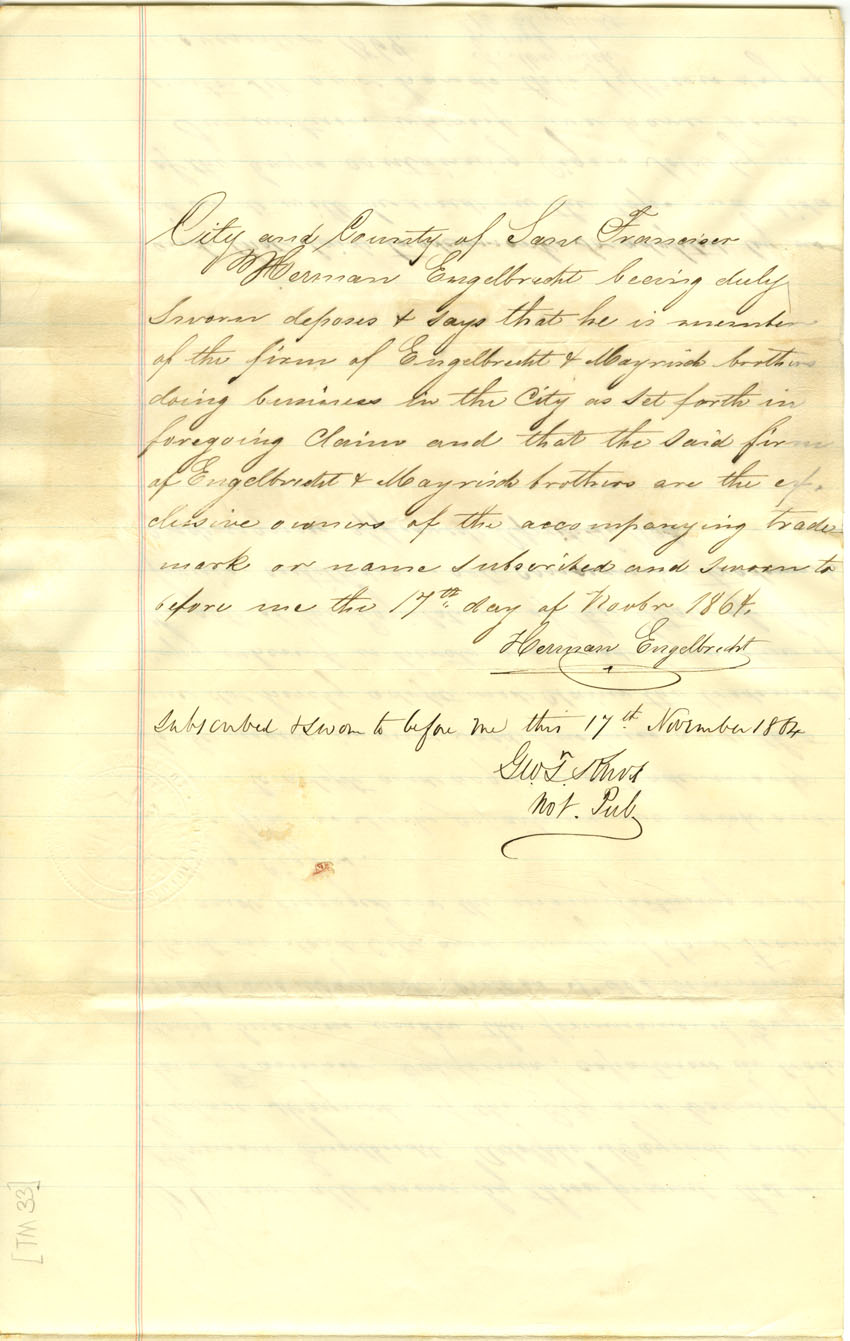 City and County of San Francisco
Herman Engelbrecht beeing duly
Sworn deposes & says that he is member
of the firm of Engelbrecht & Mayrisch brothers
doing business in the City as set forth in
foregoing Claim and that the said firm
of Engelbrecht & Mayrisch brothers are the ex-
clusive owners of the accompanying trade
mark or name subscribed and sworn to
before me the 17th day of Novbr 1864.
Herman Engelbrecht
Subscribed & sworn to before me this 17th November 1864
Geo. T.
Not. Pub
[TM 33]